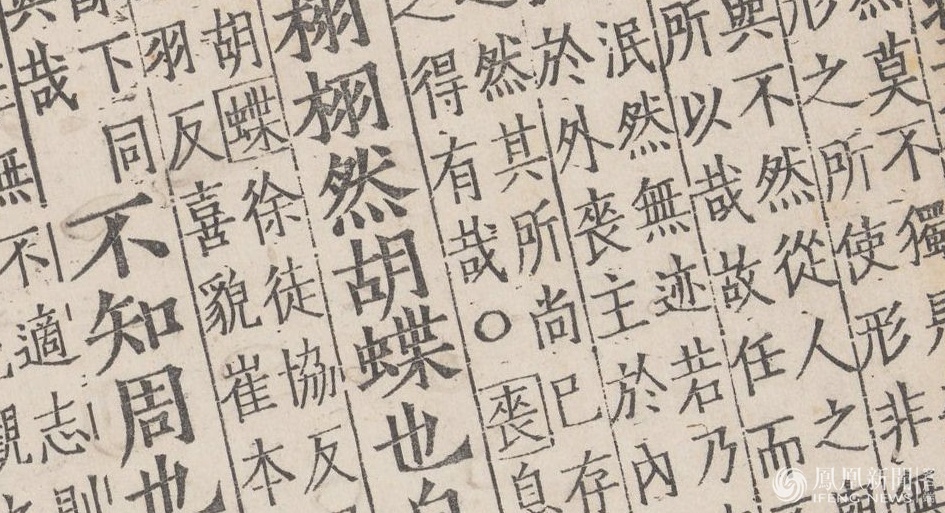 然莫不獨
形之所使形非
與不然從人之
所以哉故任而
泯然無迹若乃
於外喪主於內
然其所尚已存
之得有哉○喪息
栩栩然胡蝶也自
胡蝶徐徒協反
羽反喜貌崔本
下同不知周也
哉
適志則
無不
觀
鳳凰新聞
IFENG NEWS